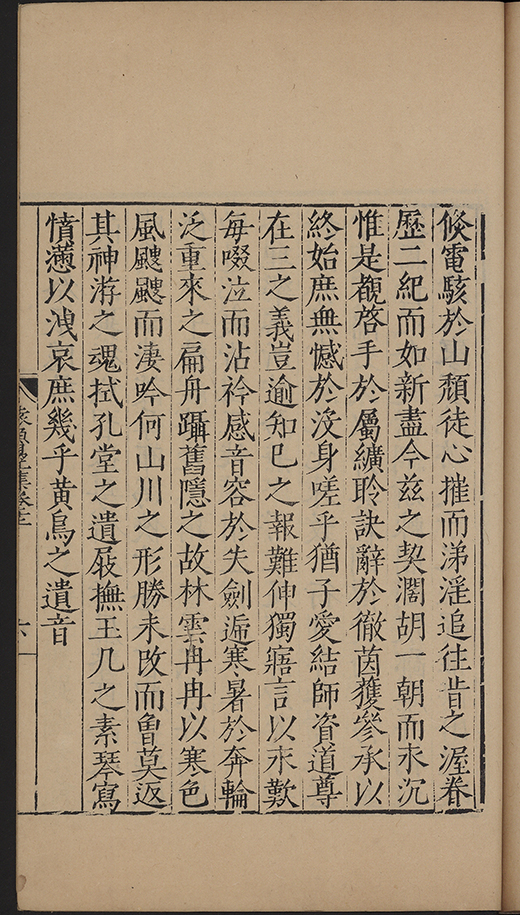 倐電駭於山頹徒心摧而涕淫追往昔之渥眷
歷二紀而如新盡今玆之契濶胡一朝而永沉
惟是覩啓手於屬纊聆訣辭於徹茵獲參承以
終始庶無憾於沒身嗟乎猶子愛結師資道尊
在三之義豈逾知己之報難伸獨寤言以永歎
每啜泣而沾衿感音容於失劍逓寒暑於奔輪
泛重來之扁舟躡舊隱之故林雲冉冉以寒色
風颼颼而淒吟何山川之形勝未改而魯莫返
其神游之魂拭孔堂之遺屐撫王几之素琴寫
惰懣以洩哀庶幾乎黃鳥之遺音
集卷三
六